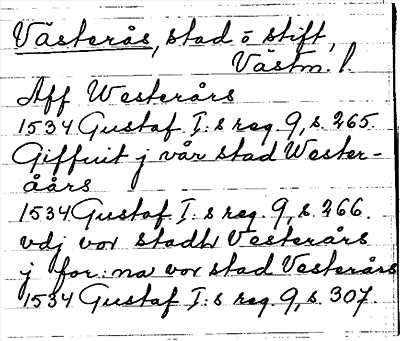 Västerås, stad o stift,
Västm. l.
Aff Westerårs
1534 Gustaf I:s reg. 9, s. 265.
Giffuit j vår stad Wester-
åårs
1534 Gustaf I:s reg. 9, s. 266.
vdj vor stadh Vesterårs
j for:na vor stad Vesterårs
1534 Gustaf I:s reg. 9, s. 307.